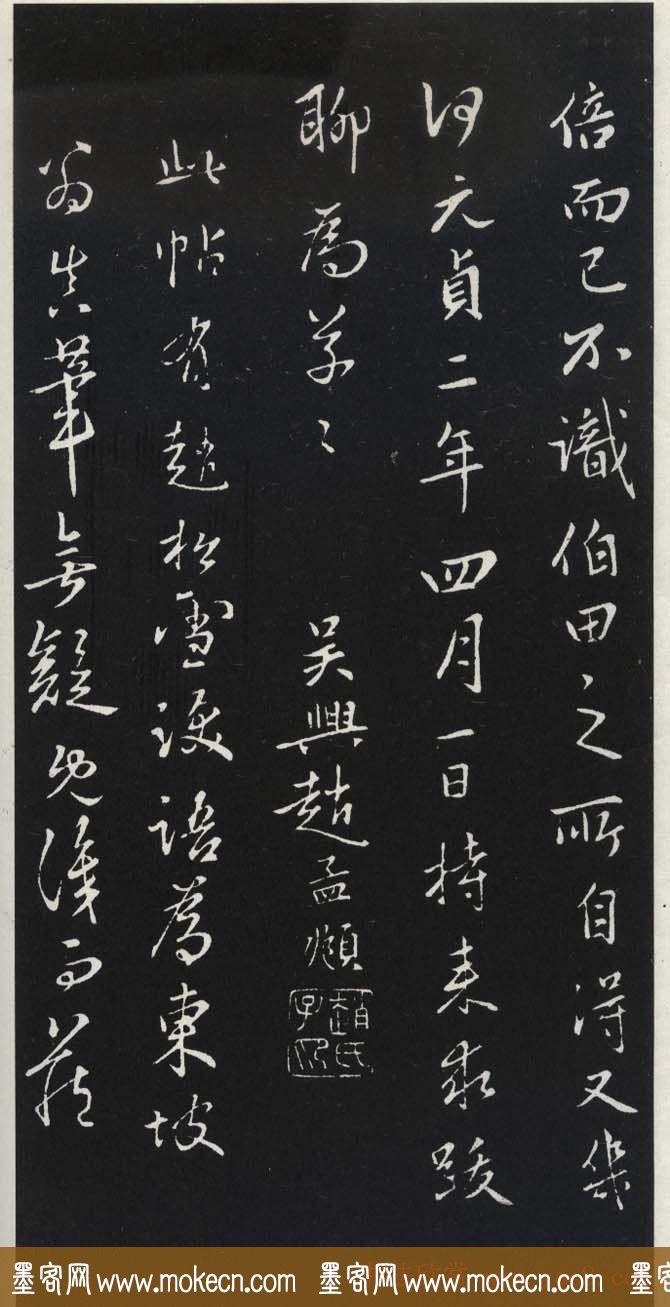 倍而已不識伯田之所自得又幾
何元貞二年四月一日持來求跋
聊爲草〻
吳興趙孟頫
趙氏子昂
此帖有趙松雪跋語爲東坡
翁真筆無疑
墨客网 www.mokecn.com 墨客网 www.mokecn.com 墨客